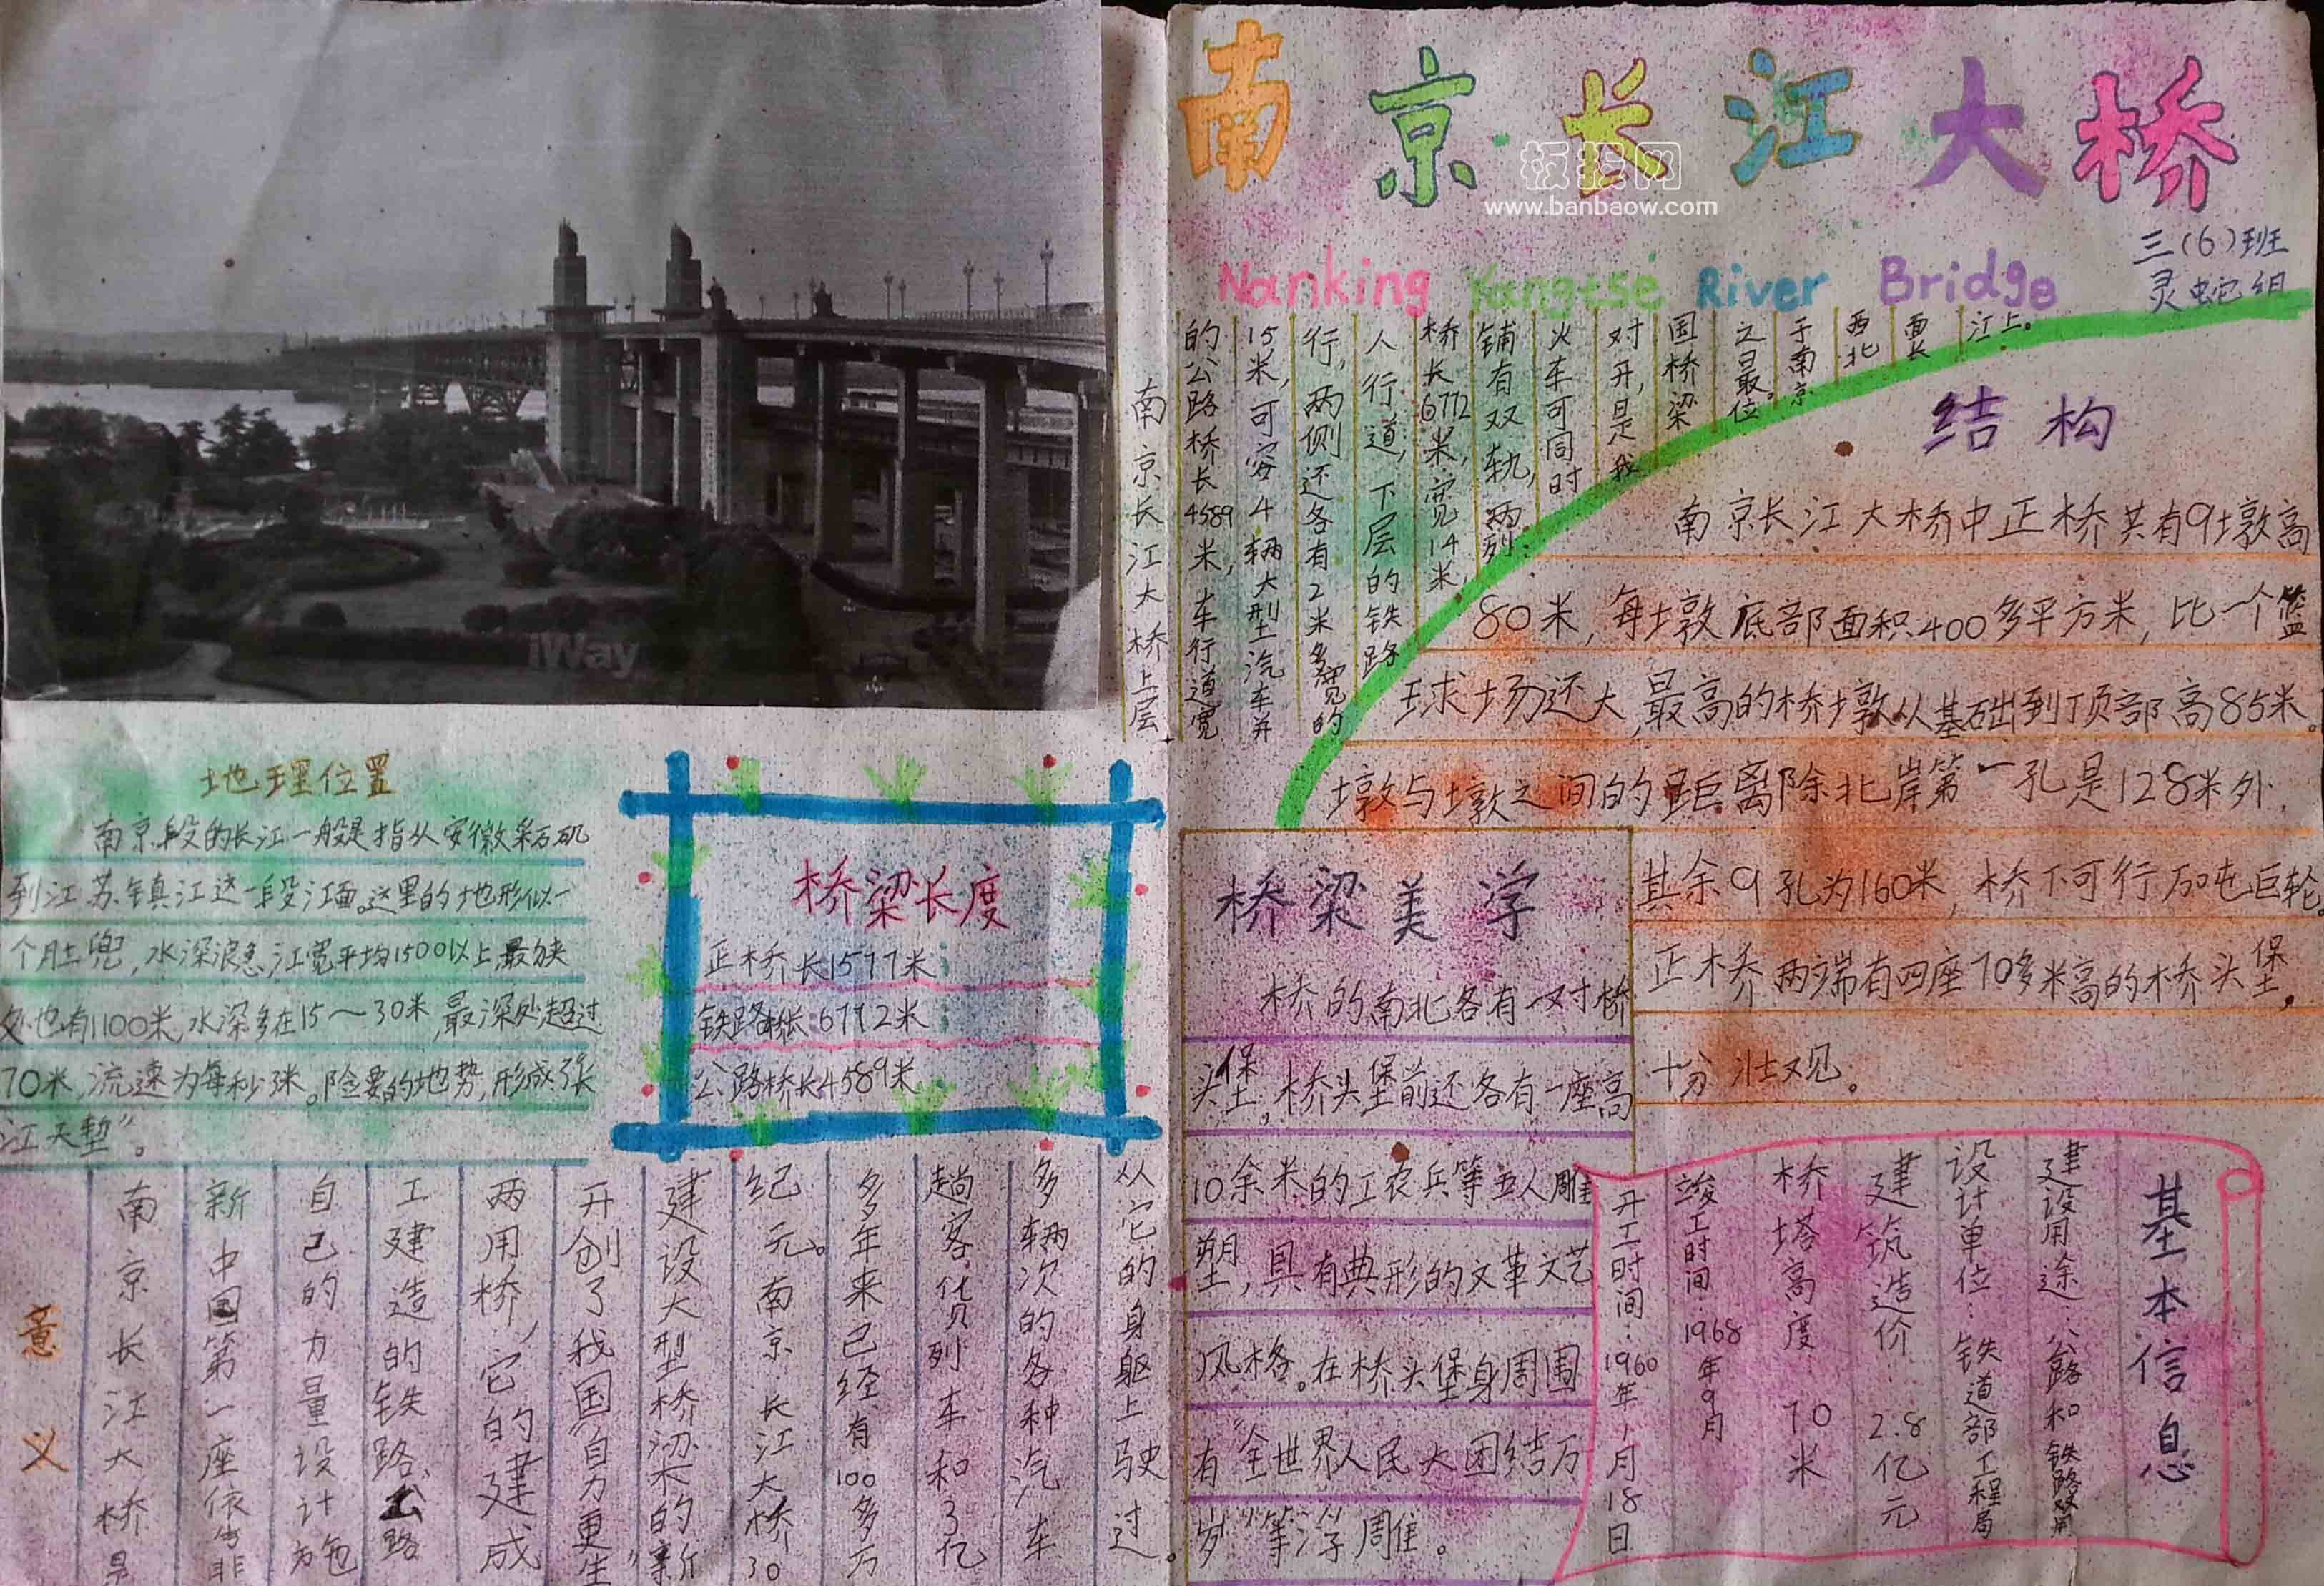 南京长江大桥
板报网
www.banbaow.com
Nanking Yangtse River Bridge
三(6)班
灵蛇组
iWay
南京长江大桥上层
的公路桥长4589米,车行道宽
15米,可容4辆大型汽车并
行,两侧还各有2米多宽的
人行道,下层的铁路
桥长6772米,宽14米,
铺有双轨,两列
火车可同时
对开,是我
国桥梁
之最。位
于南京
西北
面长
江上。
结构
南京长江大桥中正桥共有9墩高
80米,每墩底部面积400多平方米,比一个篮
球场还大,最高的桥墩从基础到顶部高85米。
墩与墩之间的距离除北岸第一孔是128米外,
其余9孔为160米,桥下可行万吨巨轮
正桥两端有四座70多米高的桥头堡。
十分壮观。
地理位置
南京段的长江一般是指从安徽采石矶
到江苏镇江这一段江面。这里的地形似一
个肚兜,水深浪急,江宽平均1500以上,最狭
处也有1100米,水深多在15~30米,最深处超过
70米,流速为每秒3米。险要的地势,形成"长
江天堑"。
桥梁长度
正桥长1577米
铁路桥长:6772米
公路桥长4589米
桥梁美学
桥的南北各有一对桥
头堡,桥头堡前还各有一座高
10余米的工农兵等五人雕
塑,具有典形的文革文艺
风格。在桥头堡身周围
有"全世界人民大团结万
岁"等浮雕。
意义
南京长江大桥是
新中国第一座依靠
自己的力量设计
工建造的铁路、公路
两用桥,它的建成
开创了我国"自力更生"
建设大型桥梁的新
纪元。南京长江大桥30
多年来已经有100多万
趟客、货列车和3亿
多辆次的各种汽车
从它的身躯上驶过。
基本信息
建设用途:公路和铁路双用
设计单位:铁道部工程局
建筑造价:2.8亿元
桥塔高度:70米
竣工时间:1968年9月
开工时间:1960年1月18日